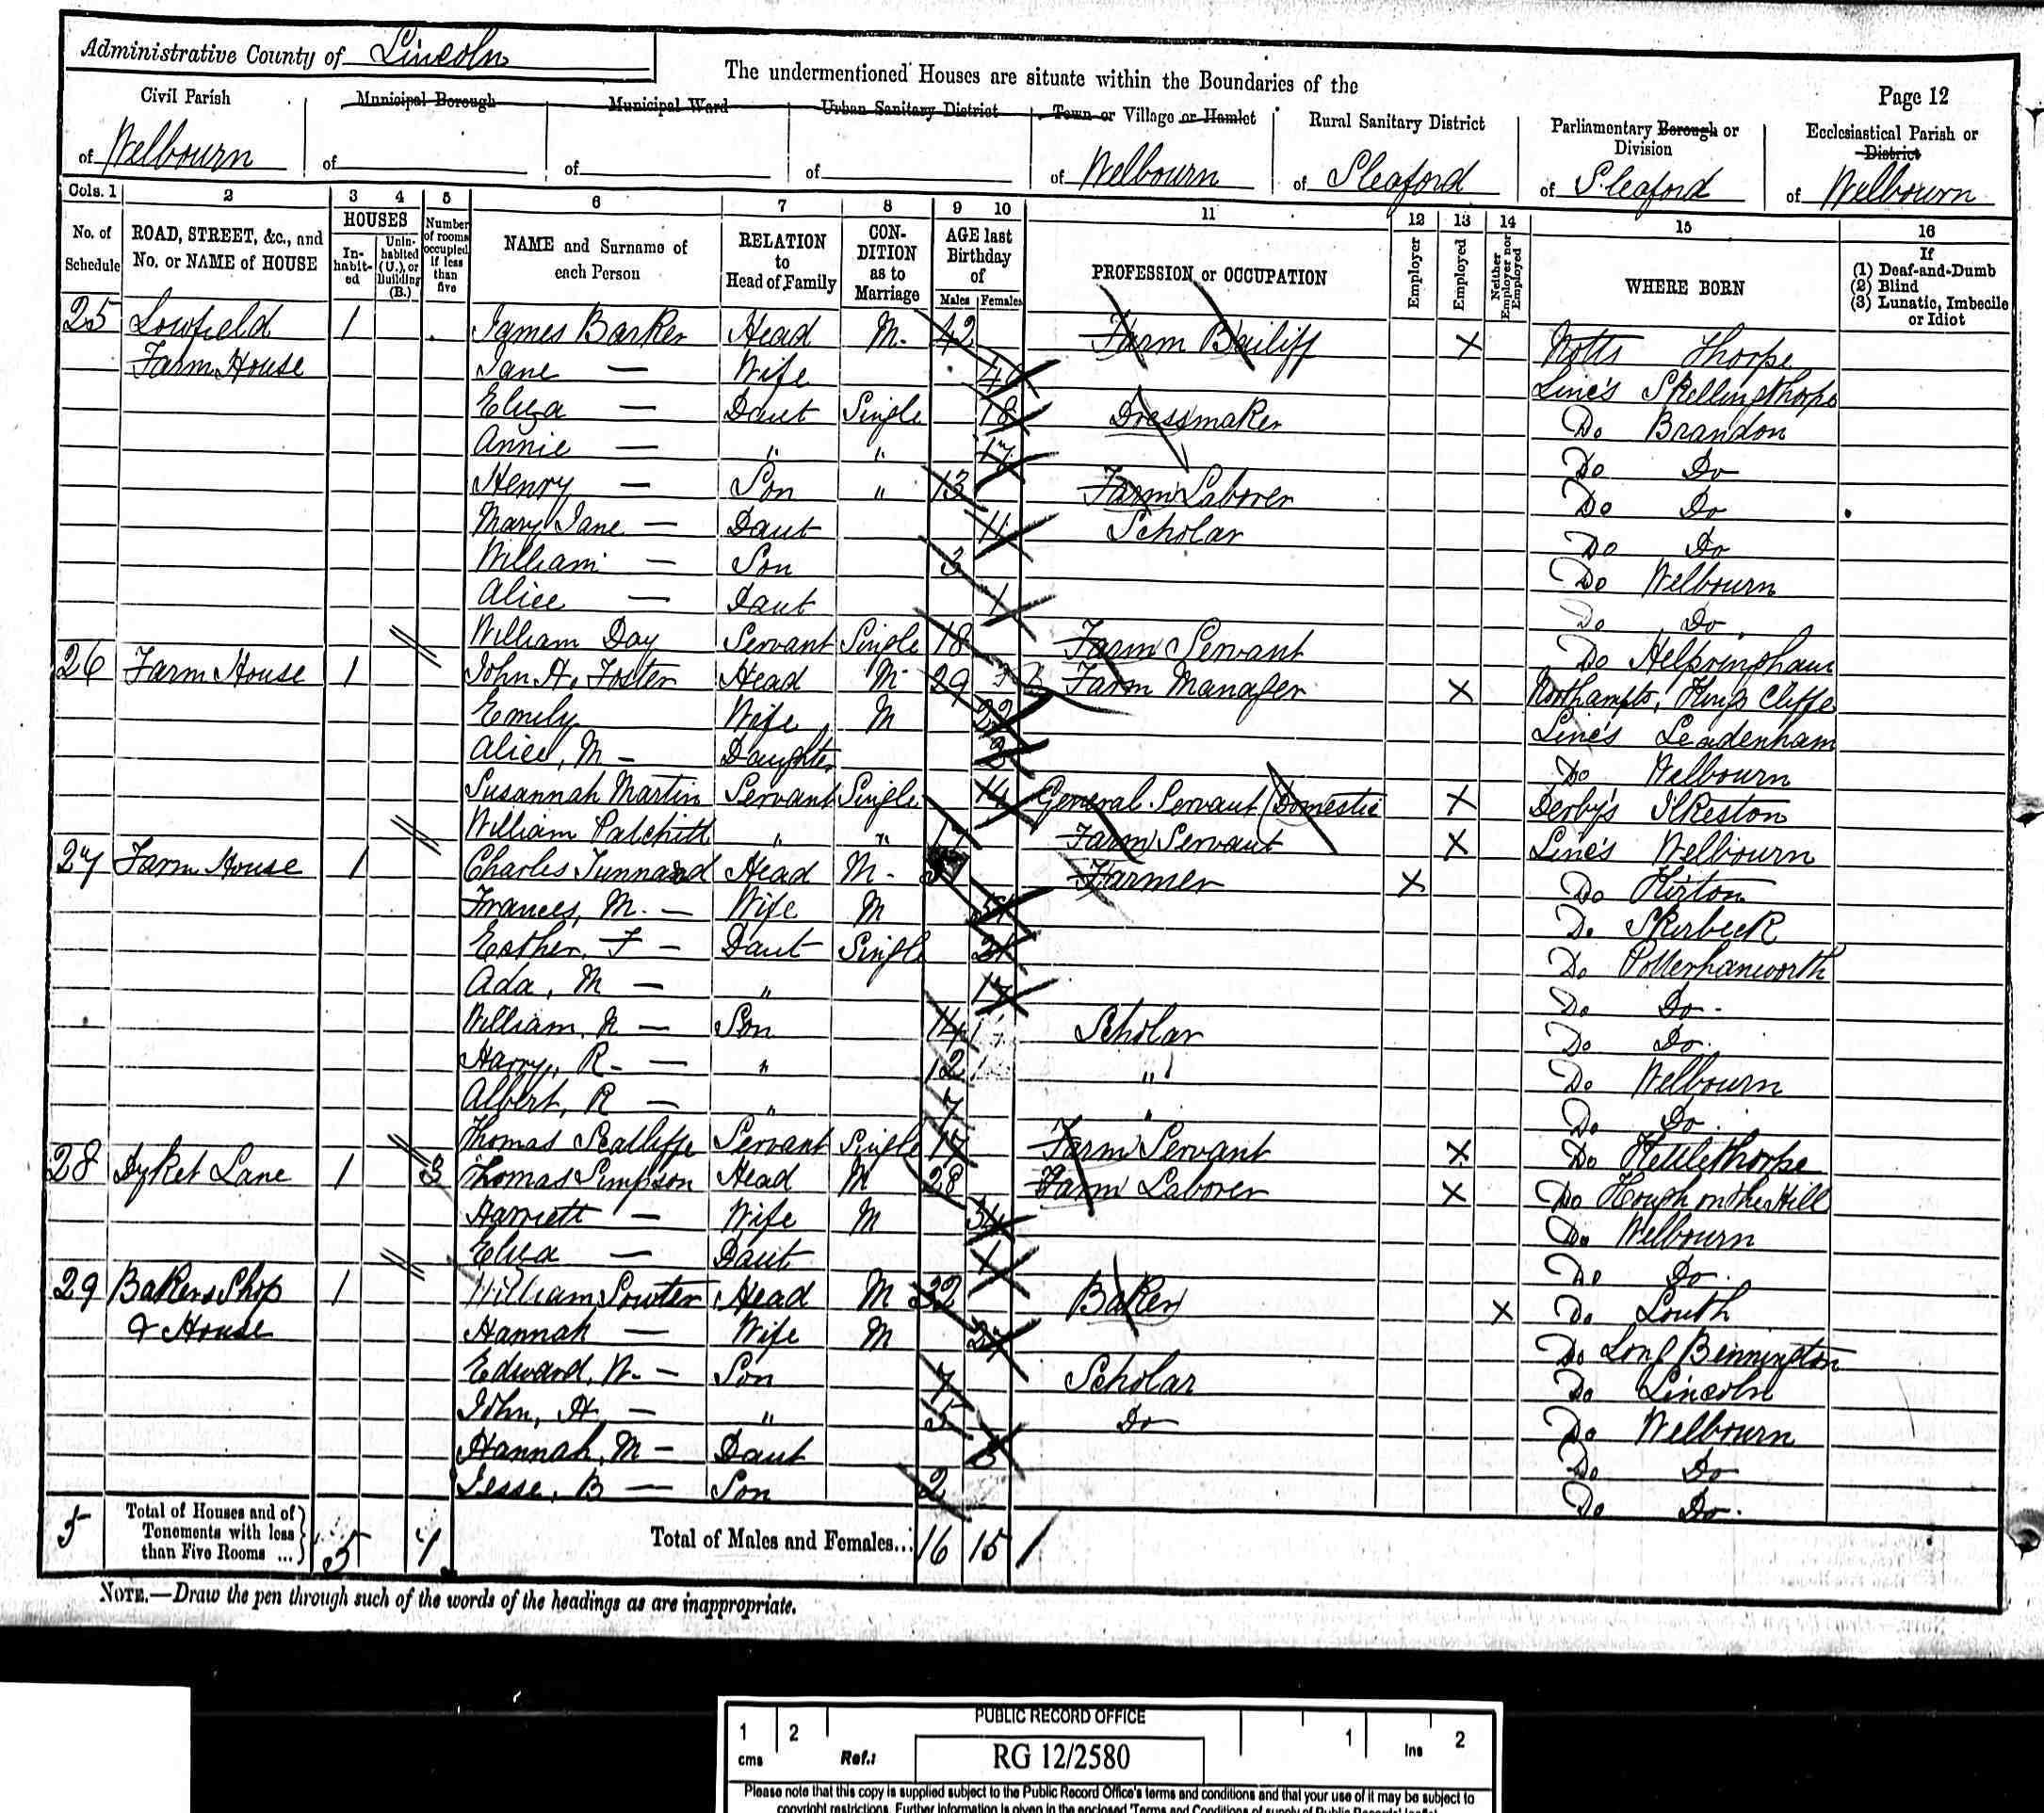 Administrative County of Lincoln
The undermentioned Houses are situate within the Boundaries of the
Page 12
Civil Parish Municipal Borough Municipal Ward Urban Sanitary District Town or Village or Hamlet Rural Sanitary District Parliamentary Borough or Division Ecclesiastical Parish or District
of Welbourn of of of of Welbourn of Sleaford of Sleaford of Welbourn
Cols. 1 2 3 4 5 6 7 8 9 10 11 12 13 14 15 16
No. of Schedule ROAD, STREET, &c., and No. or NAME of HOUSE HOUSES In-habit-ed Unin-habited (U.), or Building (B.) Number of rooms occupied if less than five NAME and Surname of each Person RELATION to Head of Family CON-DITION as to Marriage AGE last Birthday of Males Females PROFESSION or OCCUPATION Employer Employed Neither Employer nor Employed WHERE BORN If (1) Deaf-and-Dumb (2) Blind (3) Lunatic, Imbecile or Idiot
25 Lowfield 1 James Barker Head M. 42 Farm Bailiff X Notts Thorpe
Farm House Jane — Wife Linc's Skellingthorpe
Eliza — Daut Single 18 Dressmaker Do Brandon
Annie — " " 17 Do Do
Henry — Son " 13 Farm Laborer Do Do
Mary Jane — Daut 11 Scholar Do Do
William — Son 3 Do Welbourn
Alice — Daut 1 Do Do
William Day Servant Single 18 Farm Servant Do Helpringham
26 Farm House 1 John H. Foster Head M 29 Farm Manager X Northampts, Kings Cliffe
Emily Wife M Linc's Leadenham
Alice, M — Daughter Do Welbourn
Susannah Martin Servant Single 14 General Servant (Domestic X Derby's Ilkeston
William " " 17 Farm Servant X Linc's Welbourn
27 Farm House 1 Charles Tunnard Head M. Farmer X Do Kirton
Frances, M. — Wife M Do Skirbeck
Esther, F — Daut Single 21 Do Potterhanworth
Ada, M — " 17 Do Do
William, — Son 14 Scholar Do Do
Harry, R — " 12 " Do Welbourn
Albert, R — " 7 " Do Do
Thomas Servant Single 17 Farm Servant X Do Kettlethorpe
28 Dyket Lane 1 3 Thomas Simpson Head M 28 Farm Laborer X Do Hough on the Hill
Harriett — Wife M 34 Do Welbourn
Eliza — Daut 1 Do Do
29 Bakers Shop 1 William Sowter Head M 32 Baker X Do Louth
& House Hannah — Wife M 27 Do Long Bennington
Edward, W. — Son 7 Scholar Do Lincoln
John, H — " 5 Do Do Welbourn
Hannah, M — Daut Do Do
Jesse, B — Son 2 Do Do
5 Total of Houses and of Tenements with less than Five Rooms ... 5 1 Total of Males and Females... 16 15
NOTE.—Draw the pen through such of the words of the headings as are inappropriate.
PUBLIC RECORD OFFICE
1 2 1 2
cms Ref.: RG 12/2580 Ins
Please note that this copy is supplied subject to the Public Record Office's terms and conditions and that your use of it may be subject to
copyright restrictions. Further information is given in the enclosed 'Terms and Conditions of supply of Public Records' leaflet